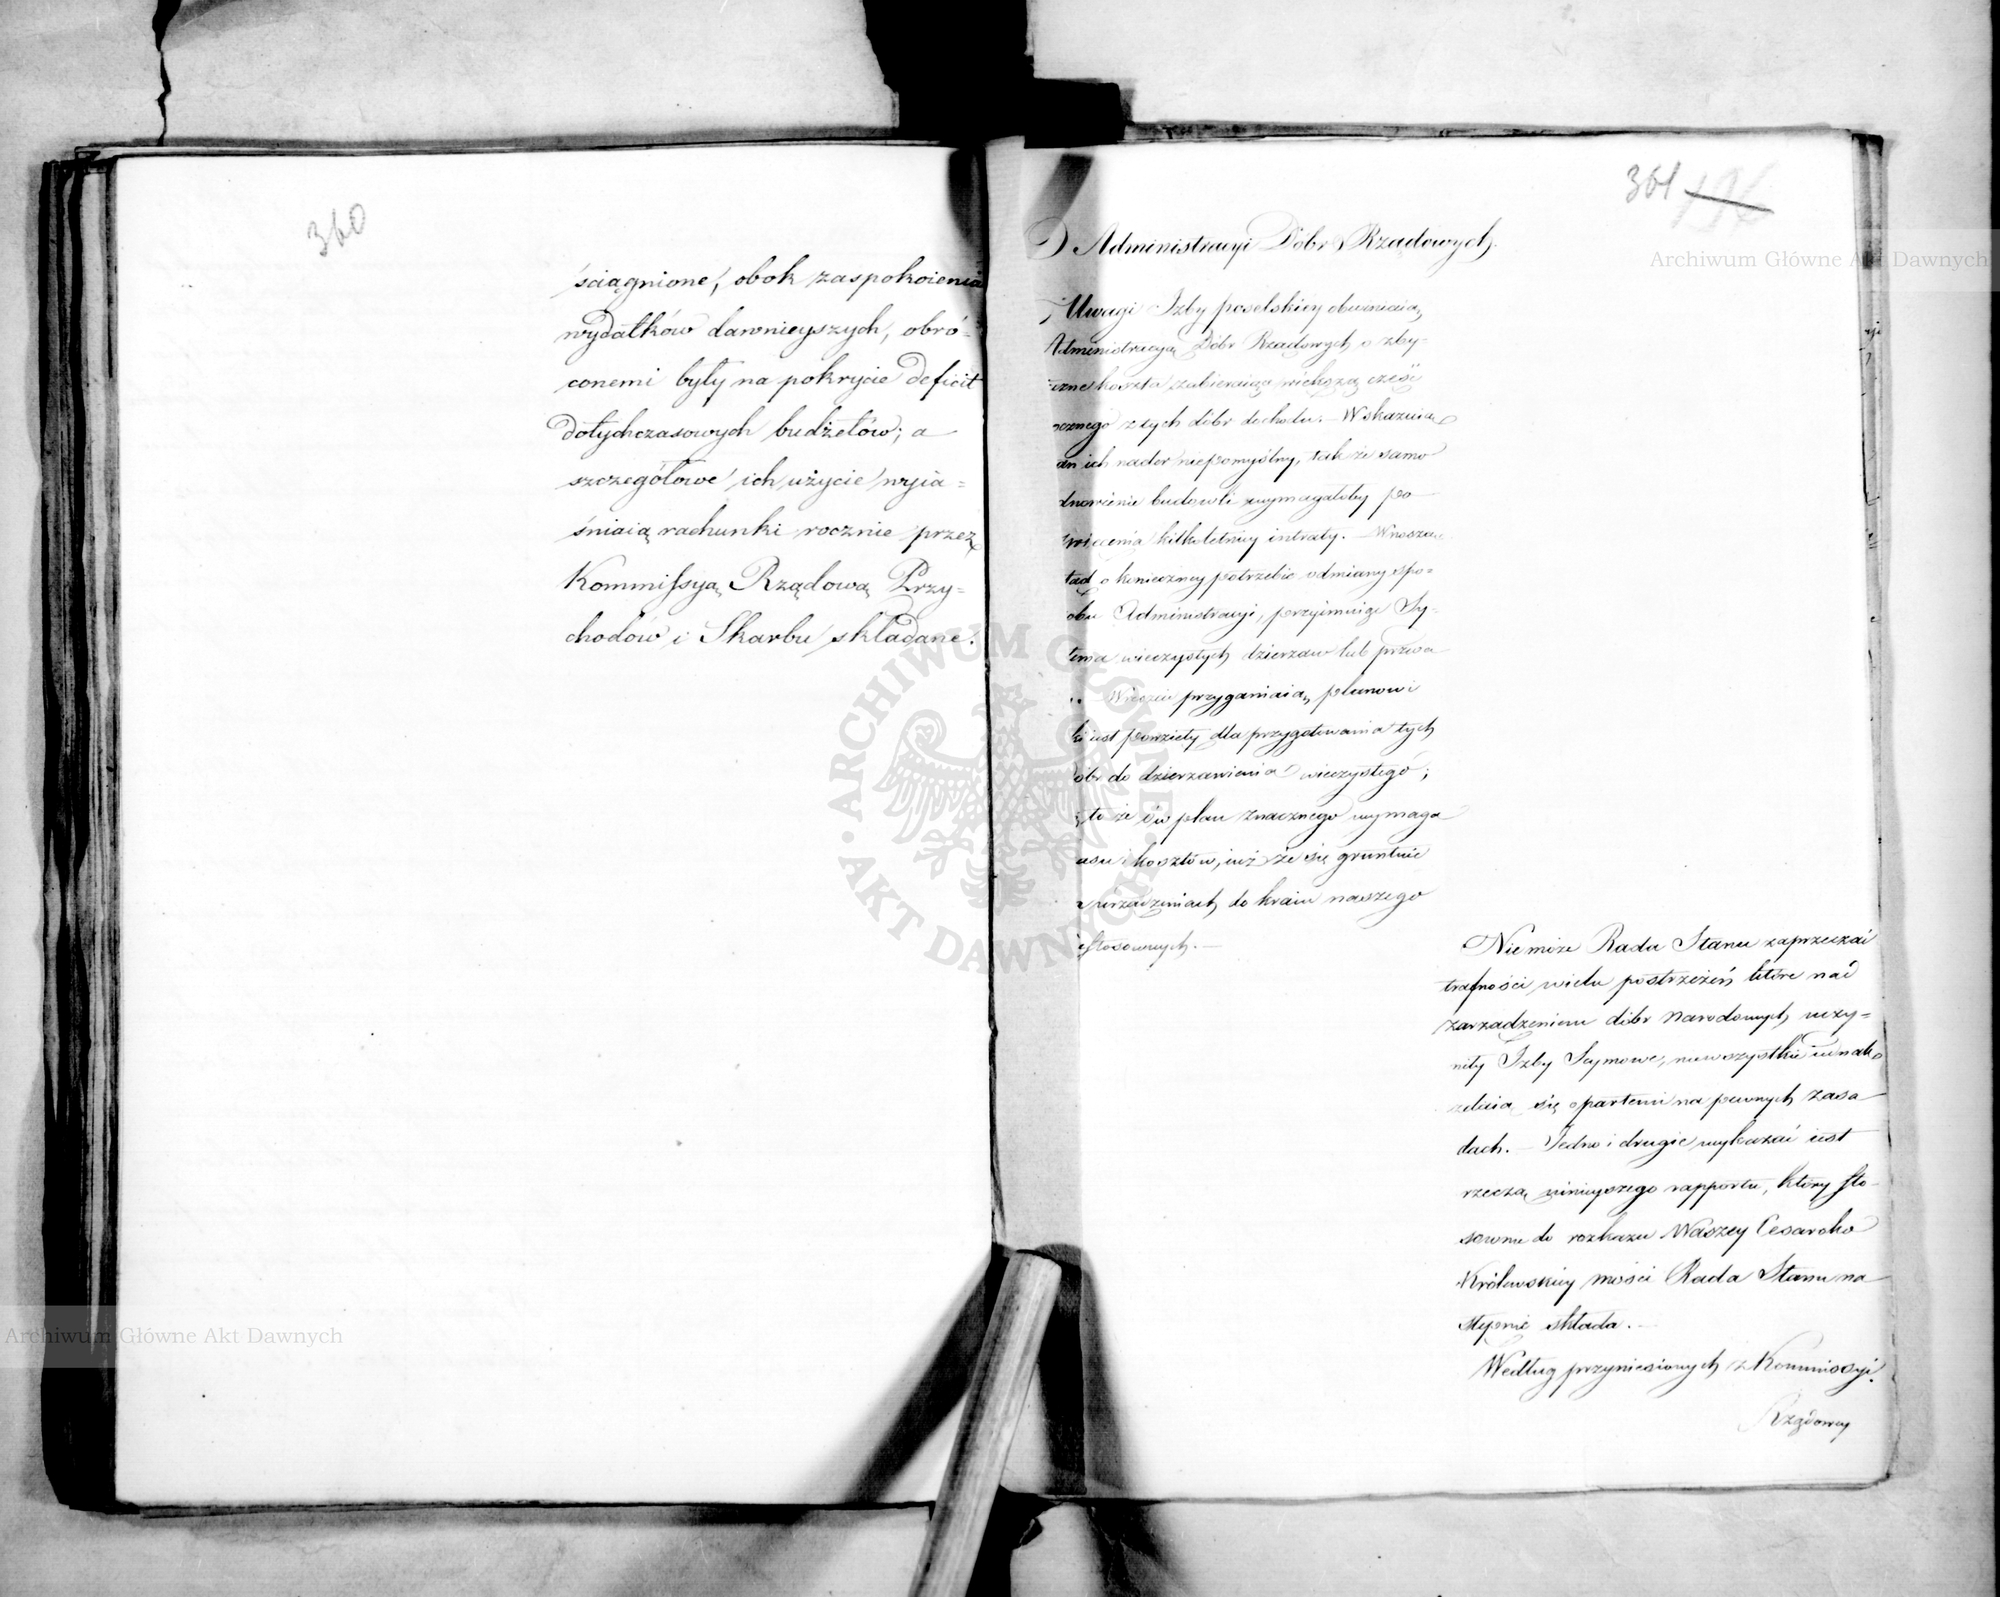 360
ściągnione, obok zaspokoienia
wydatków dawnieyszych, obró-
conemi były na pokrycie deficit
dotychczasowych budżetów; a
szczegółowe ich użycie wyia=
śniaią rachunki rocznie przez
Kommissyą Rządową Przy-
chodów i Skarbu składane.
361 196
O Administracyi Dóbr Rządowych.
Uwagi Izby poselskiey obwiniaią
Administracyą Dóbr Rządowych o zby-
koszta zabieraiące większą część
z tych dóbr dochodu. — Wskazuią
ich nader niepomyślny, tak że samo
budowli wymagałoby po-
kilkoletniey intraty. — Wnosząc
o konieczney potrzebie odmiany spo-
Administracyi, przyimuiąc Sy-
wieczystych dzierżaw lub przeda-
Wreszcie przyganiaią planowi
iest powzięty dla przygotowania tych
do dzierżawienia wieczystego;
to że ów plan znacznego wymaga
i kosztów, iuż że się gruntuie
urządzeniach do kraiu naszego
stosownych. —
Nie może Rada Stanu zaprzeczać
trafności wielu postrzeżeń które nad
zarządzeniem dóbr Narodowych uczy=
niły Izby Seymowe, nie wszystkie iednak
zdaią się opartemi na pewnych zasa-
dach. — Jedno i drugie wykazać iest
rzeczą ninieyszego rapportu, który sto-
sownie do rozkazu Waszey Cesarsko
Królewskiey Mości Rada Stanu na-
stępnie składa. —
Według przyniesionych z Kommissyi
Rządowey
Archiwum Główne Akt Dawnych
Archiwum Główne Akt Dawnych
ARCHIWUM GŁÓWNE AKT DAWNYCH